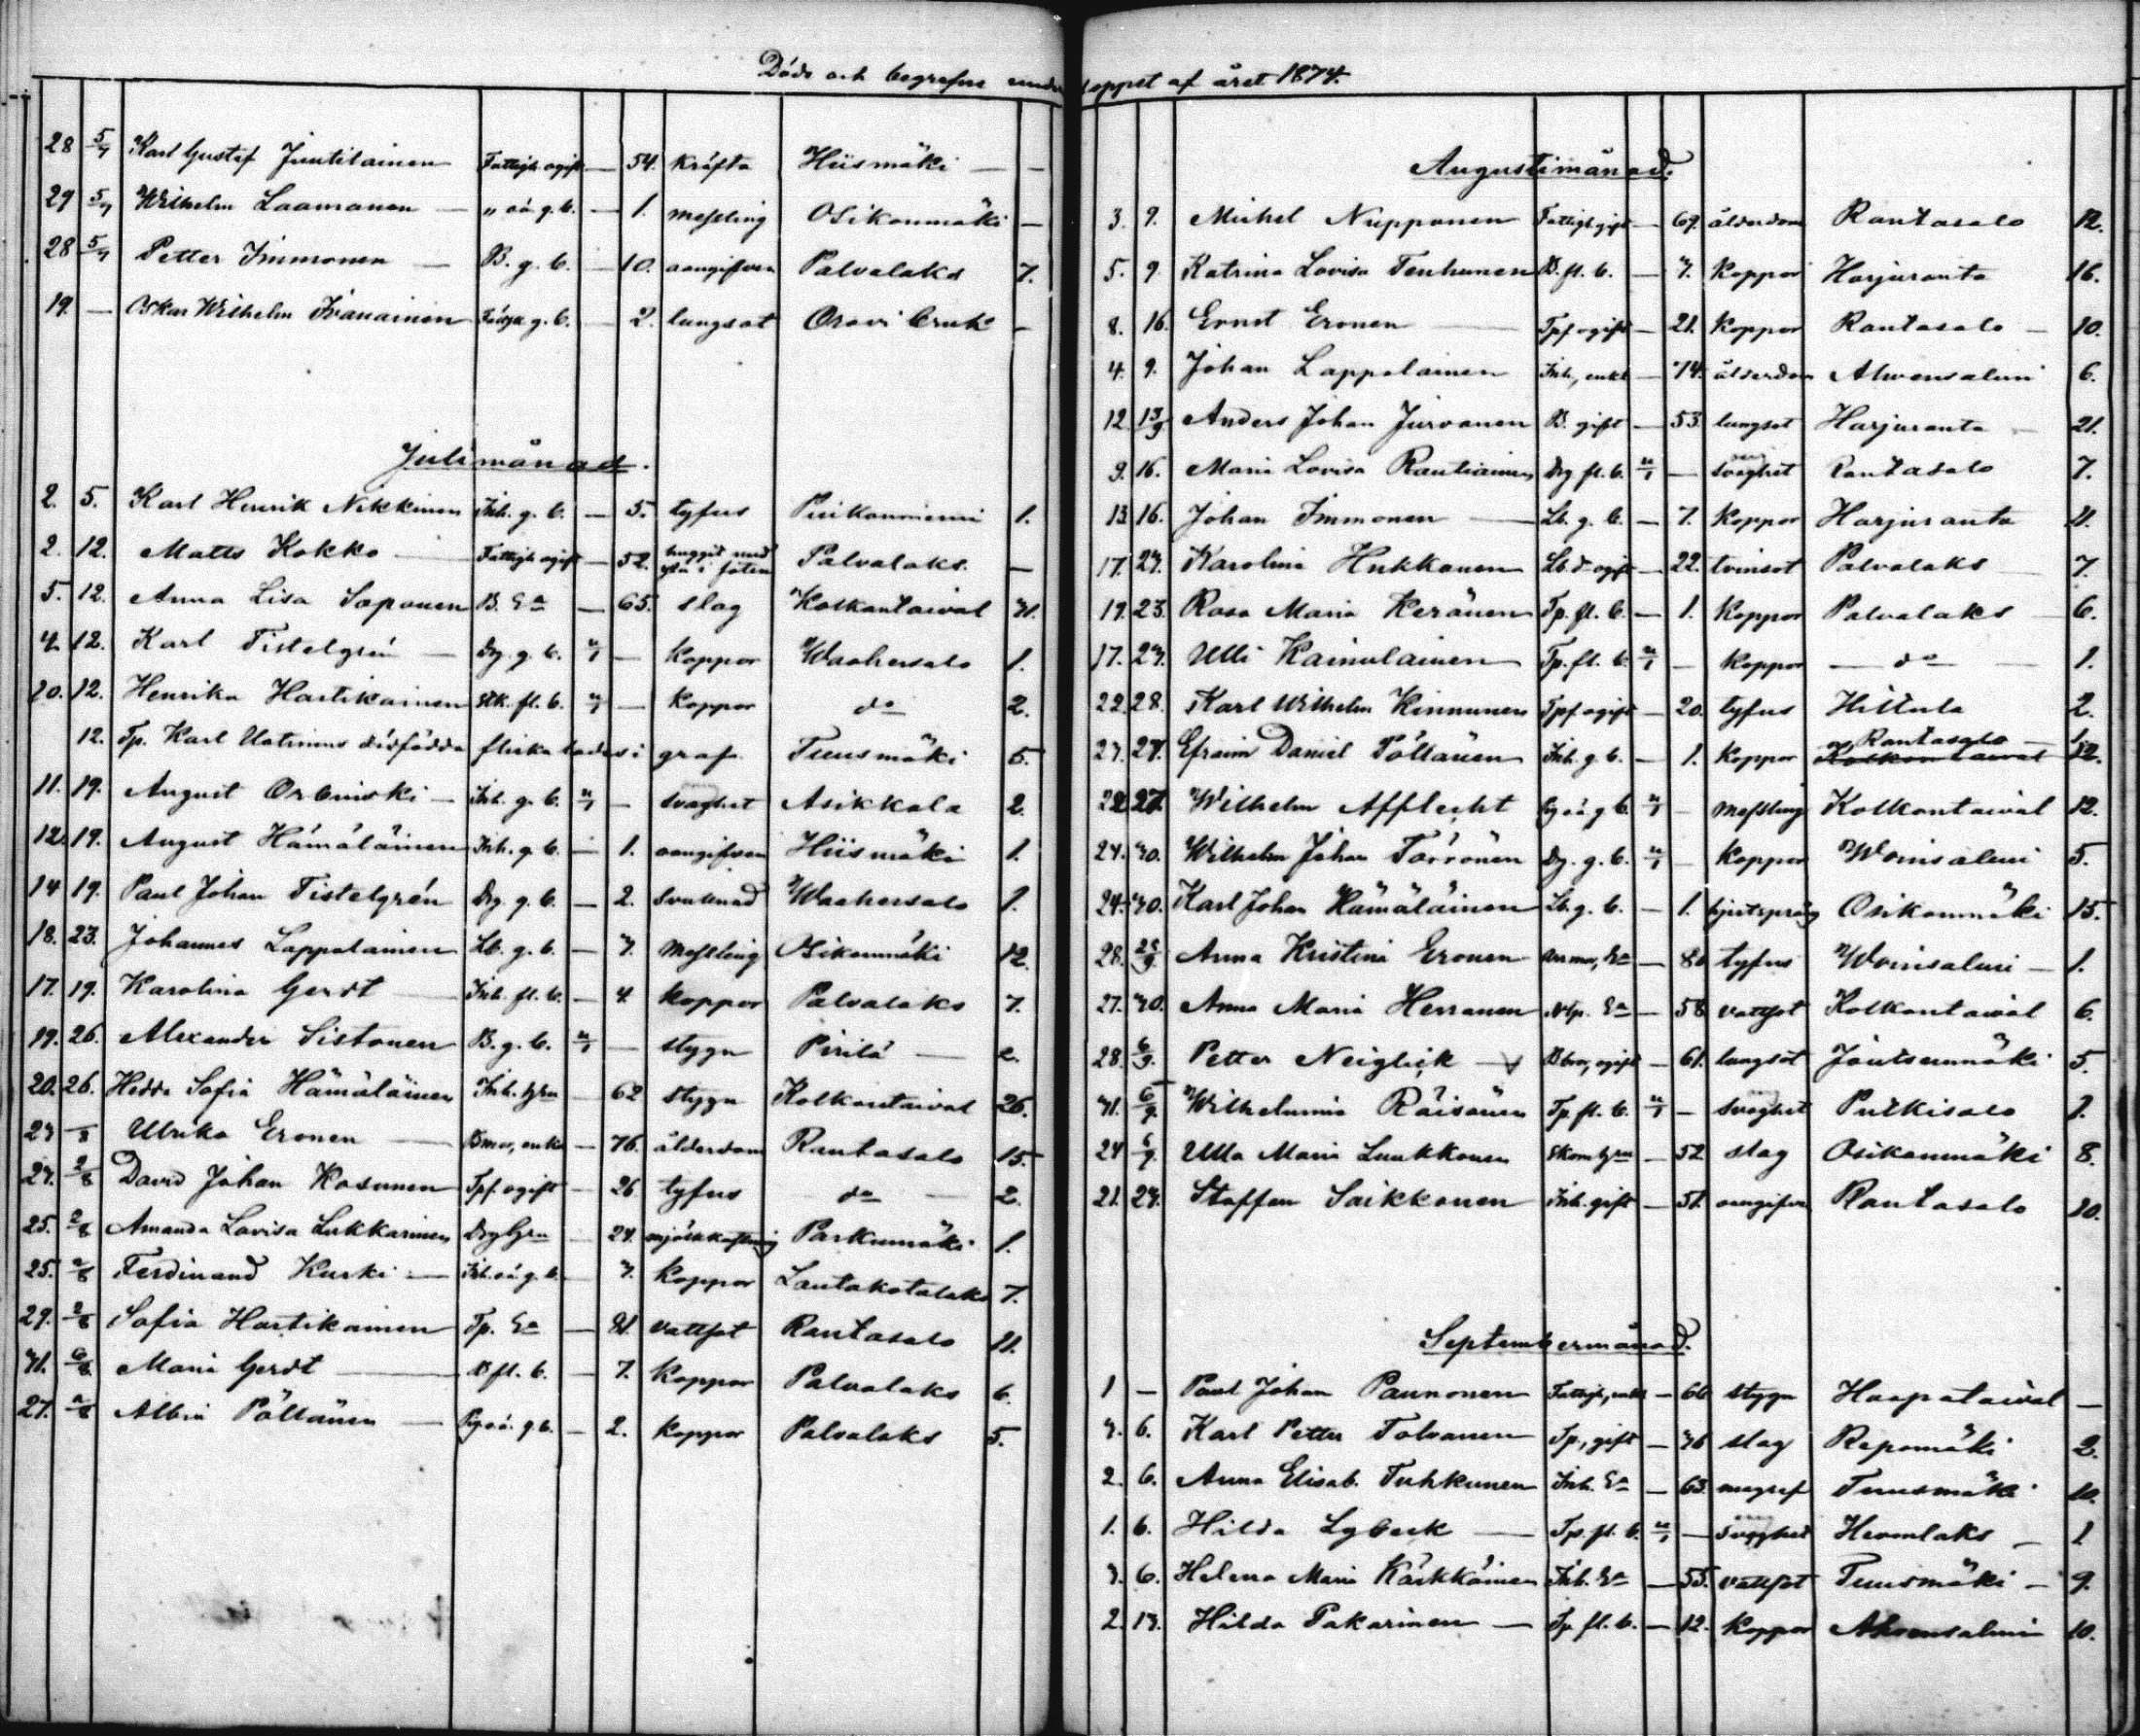 Döde och begrafne under loppet af året 1874.
28 5/7 Karl Gustaf Juutilainen Fattigh. ogift — 54. kräfta Hiismäki — —
29 5/7 Wilhelm Laamanen — " oä. g. b. — 1. messling Osikonmäki —
28 5/7 Petter Immonen — B. g. b. — 10. oangifven Palvalaks 7.
19. — Oskar Wilhelm g. b. — 2. lungsot Oravi bruk —
Julimånad.
2. 5. Karl Henrik Nikkinen Inh. g. b. — 5. tyfus 1.
2. 12. Matts Kokko — Fattigh. ogift — 52. huggit med yxa i foten Palvalaks. —
5. 12. Anna Lisa Soponen B. Ea — 65. slag Kolkontaival 31.
4. 12. Karl Tistelgrén — Drg. g. b. — koppor Waahersalo 1.
10. 12. Henrika Hartikainen fl. b. — koppor do 2.
12. Tp. Karl dödfödda flicka lades i graf Tuusmäki 5.
11. 19. August Orbinski — Inh. g. b. — svaghet Asikkala 2.
12. 19. August Hämäläinen Inh. g. b. — 1. oangifven Hiismäki 1.
14 19. Paul Johan Tistelgrén Drg. g. b. — 2. Waahersalo 1.
18. 23. Johannes Lappalainen Lb. g. b. — 3. messling Osikonmäki 12.
17. 19. Karolina Gerdt — Inh. fl. b. — 4. koppor Palvalaks 7.
19. 26. Alexander Sistonen B. g. b. — stygn Pirilä — 2.
20. 26. Hedda Sofia Hämäläinen Inh. hru — 62 stygn Kolkontaival 26.
23 Ulrika Eronen — Bmor, enka — 76. ålderdom Rantasalo 15.
27. 2/8 David Johan Kosunen Tpf. ogift — 26 tyfus — do — 2.
25. 2/8 Amanda Lovisa Lukkarinen Drg hru — 24. Parkumäki 1.
25. 2/8 Ferdinand Kurki — Inh. oä. g. b. — 3. koppor Lautakotalaks 7.
29. 2/8 Sofia Hartikainen Tp. Ea — 81. vattsot Rantasalo 11.
31. 6/8 Maria Gerdt — B fl. b. — 7. koppor Palvalaks 6.
27. 2/8 Albin Pöllänen — Pig oä. g. b. — 2. koppor Palvalaks 5.
Augustimånad.
3. 9. Michel Nupponen Fattigh. gift — 69. ålderdom Rantasalo 12.
5. 9. Katrina Lovisa Tenhunen B. fl. b. — 7. koppor Harjuranta 16.
8. 16. Ernst Eronen — Tpf ogift — 21. koppor Rantasalo — 10.
4. 9. Johan Lappalainen Inh., enkl — 74. ålderdom Ahvensalmi 6.
12. 13/9 Anders Johan Jurvanen B. gift — 53 lungsot Harjuranta — 21.
9. 16. Maria Lovisa Rautiainen Drg fl. b. — svaghet Rantasalo 7.
13 16. Johan Immonen — Lb. g. b. — 7. koppor Harjuranta 11.
17. 23. Karolina Hukkanen Lb. dr ogift — 22. tvinsot Palvalaks — 7.
19. 23. Rosa Maria Keränen Tp. fl. b. — 1. koppor Palvalaks — 6.
17. 23. Ulli Kainulainen Tp. fl. b. — koppor — do — 1.
22. 28. Karl Wilhelm Kinnunen Tpf ogift — 20. tyfus Hiltula 2.
27. 27. Efraim Daniel Pöllänen Inh. g. b. — 1. koppor Rantasalo Kolkontaival 12.
22 27. Wilhelm Afflecht Pig oä g b. — messling Kolkontaival 12.
24. 30. Wilhelm Johan Törrönen Drg. g. b. — koppor Woinsalmi 5.
24. 30. Karl Johan Hämäläinen Lb. g. b. — 1. Osikonmäki 15.
28. Anna Kristina Eronen Ea — 80 tyfus Woinsalmi — 1.
27. 30. Anna Maria Herranen Ntp. Ea — 58 vattsot Kolkontaival 6.
28. 6/9 Petter Neiglick — Bbror, ogift — 61. lungsot Joutsenmäki 5.
31. 6/9 Wilhelmina Räisänen Tp. fl. b. — svaghet Putkisalo 1.
24 6/9. Ulla Maria Luukkonen Skom hru — 52 slag Osikonmäki 8.
21. 23. Staffan Saikkonen Inh. gift — 51. oangifven Rantasalo 10.
Septembermånad.
1 — Paul Johan Paunonen Fattigh, enkl — 66 stygn Haapataival —
3. 6. Karl Petter Tolvanen Tp., gift — 36 slag Repomäki 2.
2. 6. Anna Elisab. Tuhkunen Inh. Ea — 63. magref Tuusmäki 10.
1. 6. Hilda Lybeck — Tp. fl. b. — svaghet Hevonlaks — 1
3. 6. Helena Maria Kärkkäinen Inh. Ea — 55. vattsot Tuusmäki — 9.
2. 13. Hilda Pakarinen — Tp fl. b. — 12. koppor Ahvensalmi 10.